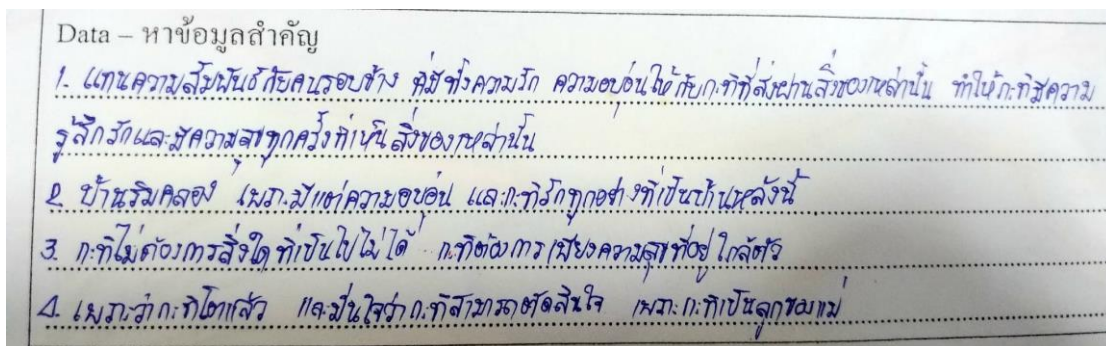 Data – หาข้อมูลสำคัญ
1. แทนความสัมพันธ์กับคนรอบข้าง ที่มีทั้งความรัก ความอบอุ่นให้กับกะทิที่ส่งผ่านสิ่งของเหล่านั้น ทำให้กะทิมีความ
รู้สึกรักและมีความสุขทุกครั้งที่เห็นสิ่งของเหล่านั้น
2. บ้านริมคลอง เพราะมีแต่ความอบอุ่น และกะทิรักทุกอย่างที่เป็นบ้านหลังนี้
3. กะทิไม่ต้องการสิ่งใดที่เป็นไปไม่ได้ กะทิต้องการเพียงความสุขที่อยู่ใกล้ตัว
4. เพราะว่ากะทิโตแล้ว และมั่นใจว่ากะทิสามารถตัดสินใจ เพราะกะทิเป็นลูกของแม่